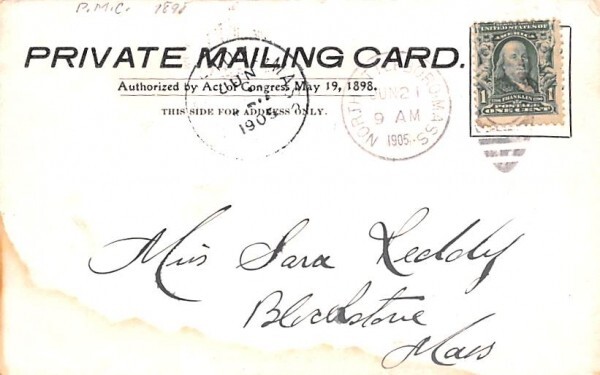 P.M.C. 1898
PRIVATE MAILING CARD.
Authorized by Act of Congress May 19, 1898.
THIS SIDE FOR ADDRESS ONLY.
JUN
MASS
1905
NORTH ATTLEBORO, MASS
JUN 21
9 AM
1905
UNITED STATES OF
AMERICA
FRANKLIN
1 1
POSTAGE
ONE CENT
Miss Sara Leddy
Blackstone
Mass